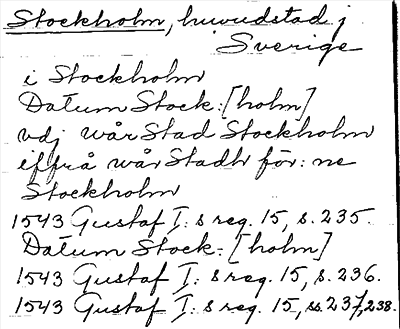 Stockholm, huvudstad i
Sverige
i Stockholm
Datum Stock:[holm]
vdj wår Stad Stockholm
iffrå wår Stadh för:ne
Stockholm
1543 Gustaf I:s reg. 15, s. 235.
Datum Stock:[holm]
1543 Gustaf I:s reg. 15, s. 236.
1543 Gustaf I:s reg. 15, ss. 237, 238.